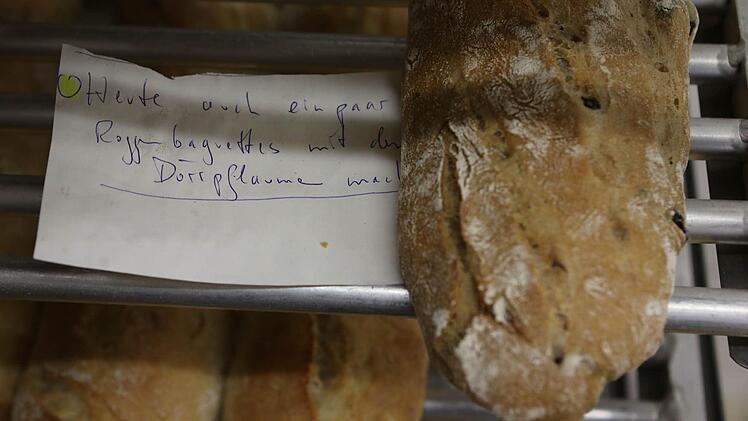 Heute auch ein paar
Roggnbaguettes mit den
Dörrpflaume mach